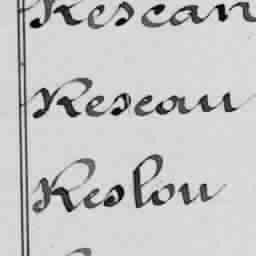 Rescan
Reseau
Reslou